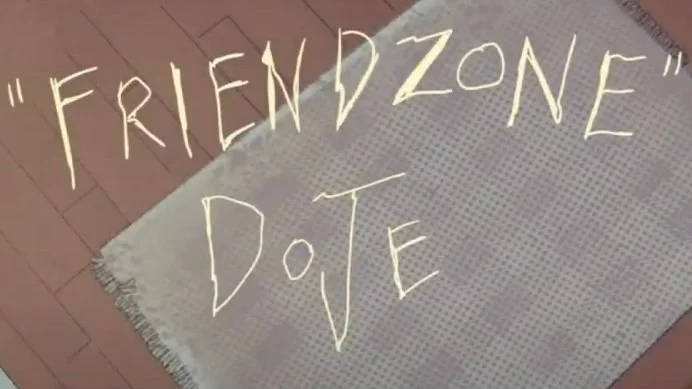 "FRIENDZONE"
DoJE